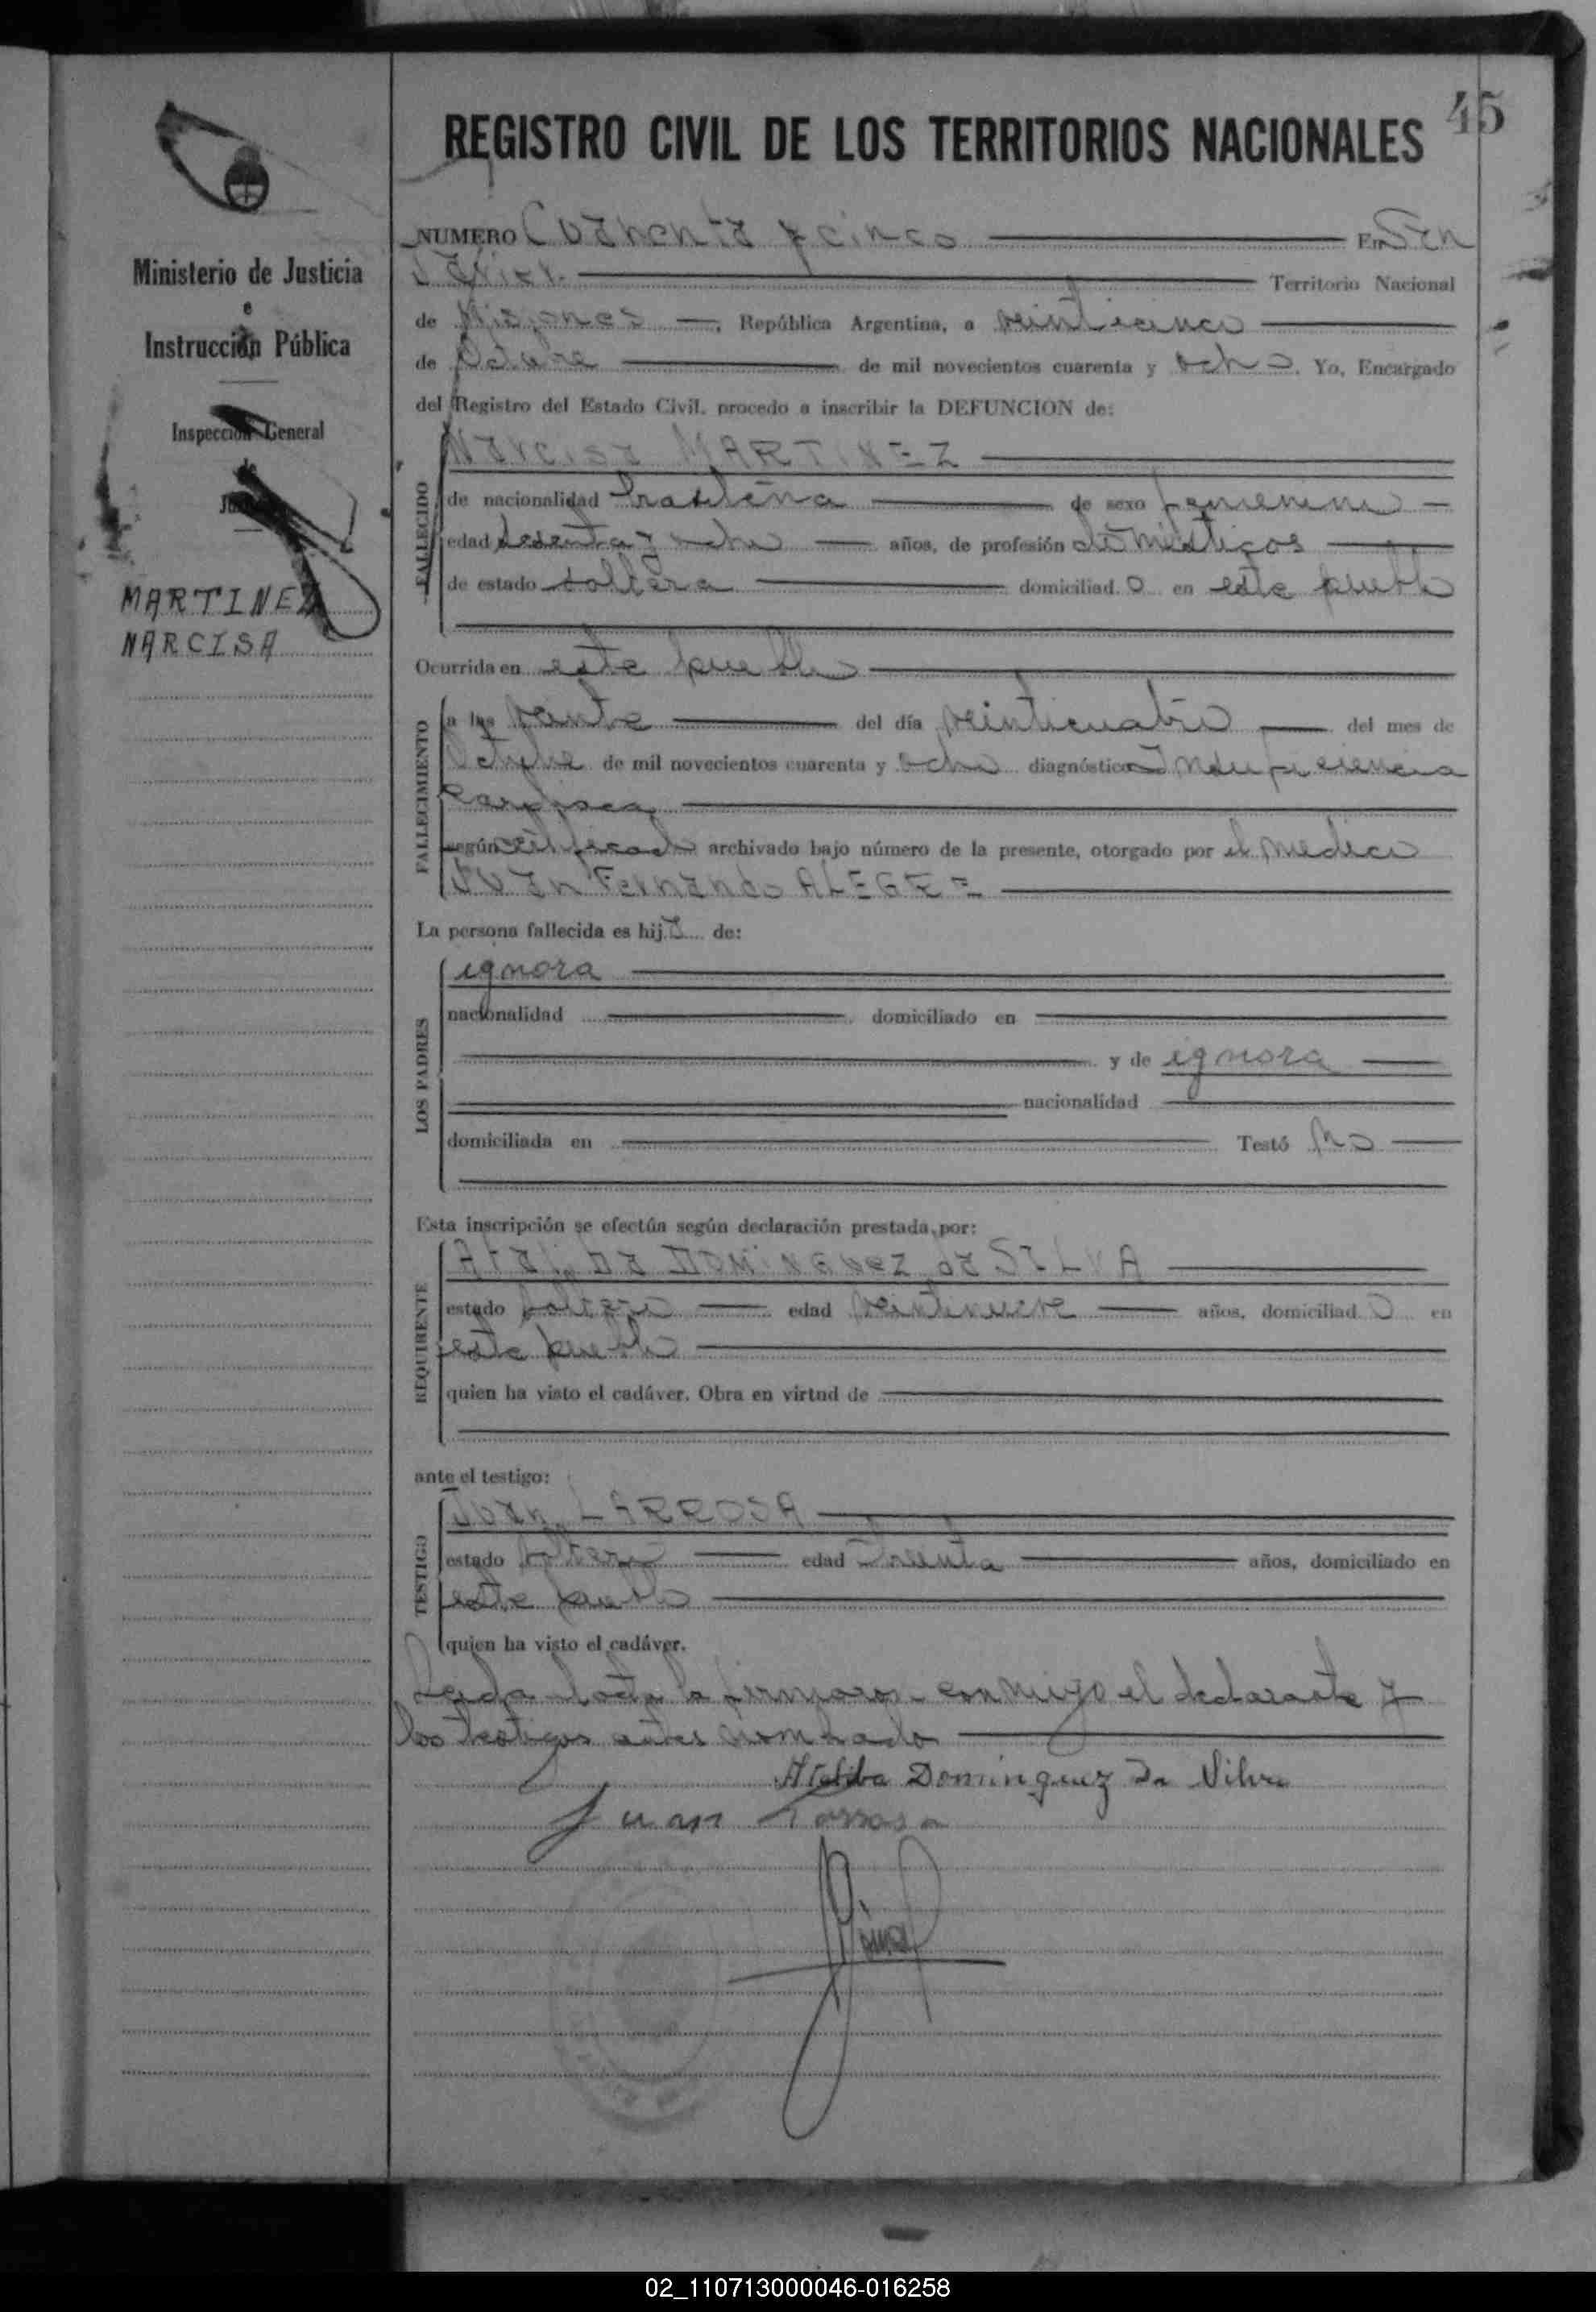 45
REGISTRO CIVIL DE LOS TERRITORIOS NACIONALES
Ministerio de Justicia
e
Instrucción Pública
Inspección General
de
MARTINEZ
NARCISA
NUMERO Cuarenta y cinco En San
Javier. Territorio Nacional
de Misiones, República Argentina, a veinticinco
de Octubre de mil novecientos cuarenta y ocho. Yo, Encargado
del Registro del Estado Civil, procedo a inscribir la DEFUNCION de:
FALLECIDO
Narcisa MARTINEZ
de nacionalidad brasileña de sexo femenino
edad sesenta y ocho años, de profesión domésticos
de estado soltera domiciliad o en este pueblo
Ocurrida en este pueblo
FALLECIMIENTO
a las veinte del día veinticuatro del mes de
Octubre de mil novecientos cuarenta y ocho diagnóstico Insuficiencia
Cardiaca
según certificado archivado bajo número de la presente, otorgado por el medico
Juan Fernando ALEGRE
La persona fallecida es hija de:
LOS PADRES
ignora
nacionalidad domiciliado en
y de ignora
nacionalidad
domiciliada en Testó No
Esta inscripción se efectúa según declaración prestada por:
REQUIRENTE
DOMINGUEZ da SILVA
estado soltero edad veintinueve años, domiciliad o en
este pueblo
quien ha visto el cadáver. Obra en virtud de
ante el testigo:
TESTIGO
Juan LARROSA
estado soltero edad Treinta años, domiciliado en
este pueblo
quien ha visto el cadáver.
Leida el acta la firmaron conmigo el declarante y
los testigos antes nombrado
Dominguez Da Silva
Juan Larrosa
02_110713000046-016258